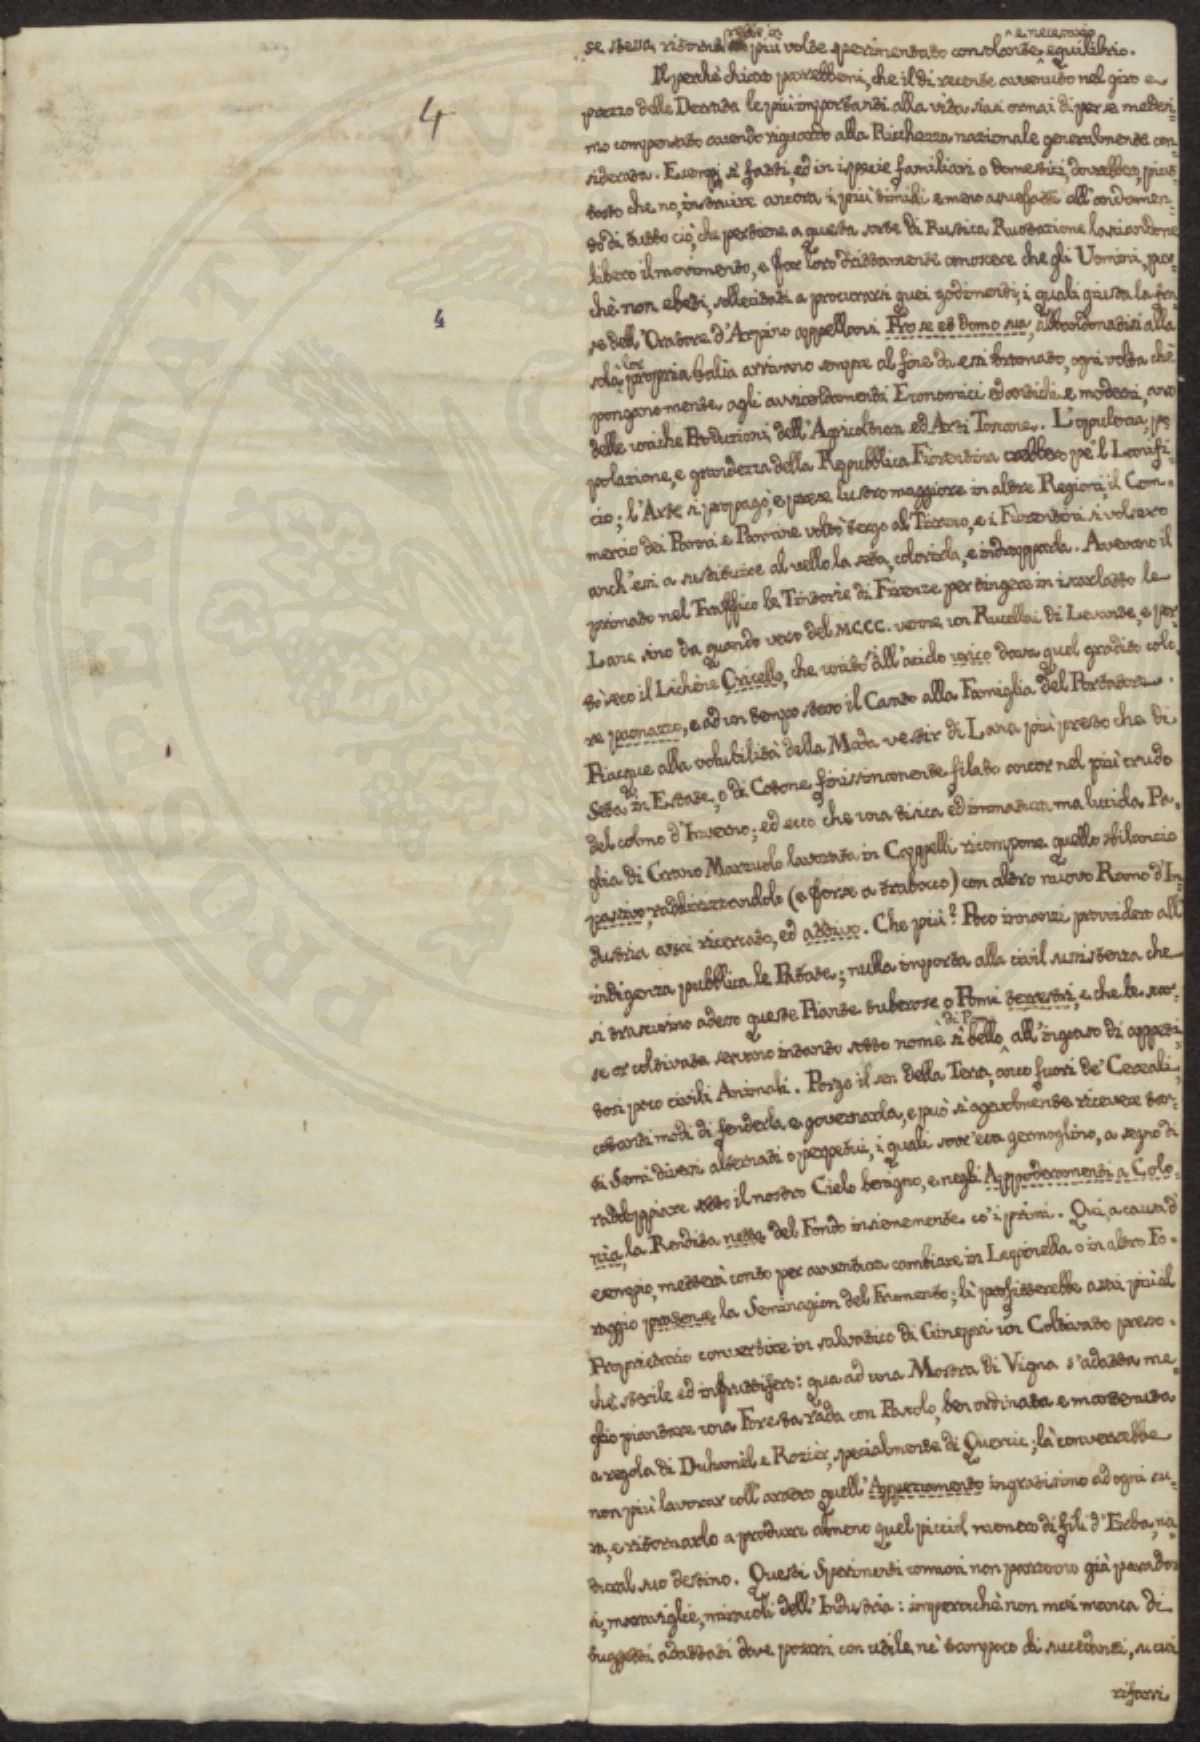 4
4
se stessa ritorna più volte sperimentato consolante e necessario equilibrio.
Il perchè chiaro parrebbemi, che il di recente avvenuto nel giro e
prezzo delle Derrate le più importanti alla vita siasi ormai di per se medesi-
mo compensato avendo riguardo alla Ricchezza nazionale generalmente con-
siderata. Esempj sì fatti, ed in ispecie familiari o domestici, dovrebbero, piut-
tosto che no, instruire ancora i più timidi e meno assuefatti all'andamen-
to di tutto ciò, che pertiene a questa sorte di Rustica Ruotazione lasciandone
libero il movimento, e far loro drittamente conoscere che gli Uomini, pur-
chè non ebeti, sollecitati a procurarsi quei godimenti, i quali giusta la fra-
se dell'Oratore d'Arpino appellansi Pro se et domo sua, abbandonatisi alla
sola lor propria balia arrivano sempre al fine da essi bramato, ogni volta che
pongano mente agli avvicendamenti Economici ed antichi e moderni, anco
delle varie Produzioni dell'Agricoltura ed Arti Toscane. L'opulenza, po-
polazione, e grandezza della Repubblica Fiorentina crebbero pe'l Lanifi-
cio; l'Arte si propagò, e prese lustro maggiore in altre Regioni, il Com-
mercio dei Panni e Pannine voltò tergo al Tirreno, e i Fiorentini si volsero
anch'essi a sustituire al vello la seta, colorirla, e indrapparla. Avevano il
primato nel Traffico le Tintorie di Firenze per tingere in iscarlatto le
Lane sino da quando verso del MCCC. venne un Rucellai di Levante, e por-
tò seco il Lichène Oricello, che unito all'acido urico dava quel gradito colo-
re paonazzo, e ad un tempo stesso il Casato alla Famiglia del Portatore.
Piacque alla volubilità della Moda vestir di Lana più presto che di
Seta in Estate, o di Cotone finissimamente filato ancor nel più crudo
del colmo d'Inverno; ed ecco che una tisica ed immatura ma lucida Pa-
glia di Grano Marzuolo lavorata in Cappelli ricompone quello sbilancio
passivo, raddirizzandolo (e forse a trabocco) con altro nuovo Ramo d'In-
dustria assai ricercato, ed attivo. Che più? Poco innanzi providero all'
indigenza pubblica le Patate; nulla importa alla civil sussistenza che
si trascurino adesso queste Piante tuberose o Pomi terrestri, e che le scar-
se or coltivate servano intanto sotto nome sì bello di Pomi all'ingrasso di appeti-
tosi poco civili Animali. Porge il sen della Terra, anco fuori de' Cereali,
cotanti modi di fenderla e governarla, e può sì agevolmente ricevere tan-
ti Semi diversi alternati o perpetui, i quali sovr'essa germoglino, a segno di
raddoppiare sotto il nostro Cielo benigno, e negli Appoderamenti a Colo-
nìa, la Rendita netta del Fondo insiememente co' i primi. Qui, a causa d'
esempio, metterà conto per avventura cambiare in Lupinella o in altro Fo-
raggio pratense la Seminagion del Frumento; là profitterebbe assai più al
Proprietario convertire in salvatico di Ginepri un Coltivato presso-
chè sterile ed infruttifero: qua ad una Mostra di Vigna s'adatta me-
glio piantare una Foresta rada con Pascolo, ben ordinata e mantenuta
a regola di Duhamèl e Rozièr, specialmente di Quercie; là converrebbe
non più lavorar coll'aratro quell'Appezzamento ingratissimo ad ogni cu-
ra, e ritornarlo a produrre almeno quel picciol numero di fili d'Erba, na-
tural suo destino. Questi Sperimenti comuni non parranno già parados-
si, maraviglie, miracoli dell'Industria: imperciochè non mai manca di
suggetti adattati dove posarsi con utile, nè tampoco di succedanei, su cui
rifarsi